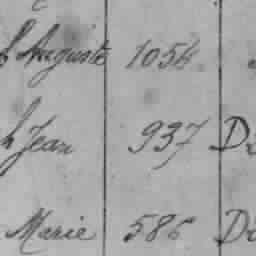 Auguste 1054
h Jean 937 D
Marie 586 D